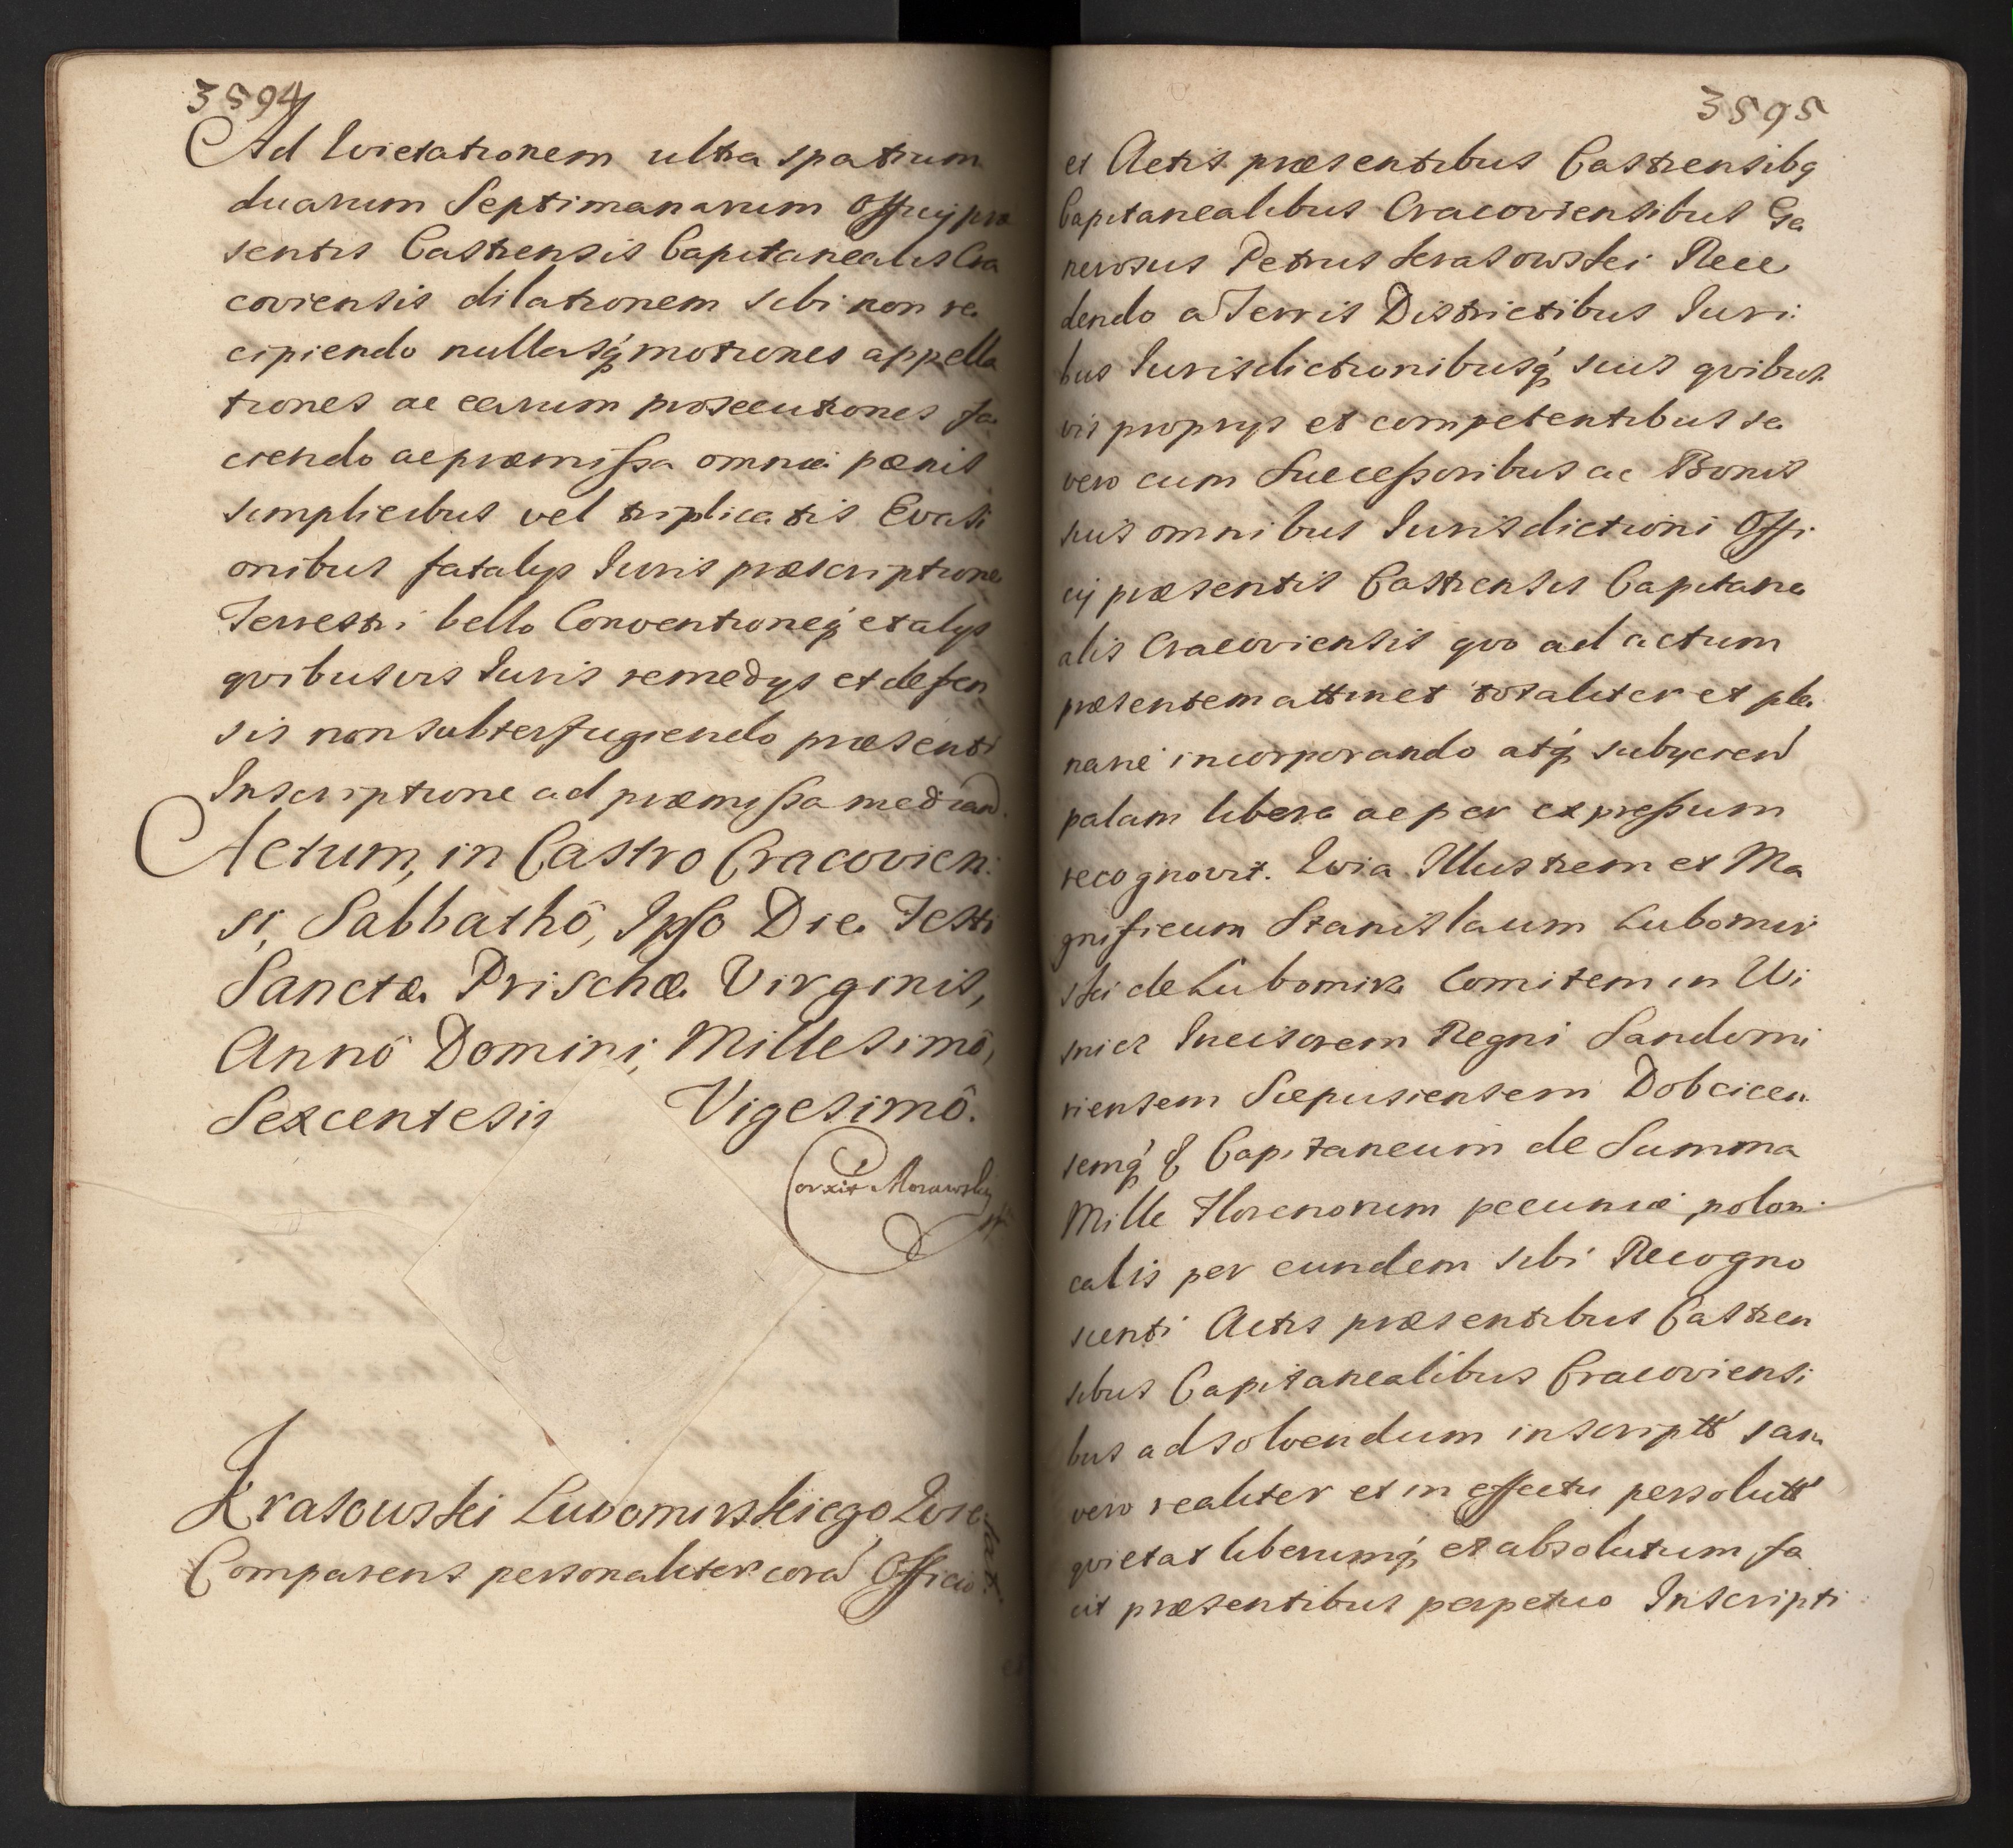 3594
Ad Qvietationem ultra spatium
duarum Septimanarum Officij præ
sentis Castrensis Capitanealis Cra
coviensis dilationem sibi non re
cipiendo nullasq́ motiones appella
tiones ac earum prosecutiones fa
ciendo ac præmissa omnia pœnis
simplicibus vel triplicatis Evasi
onibus fatalys Iuris præscriptione
Terrestri bello Conventioneq́ et alys
qvibusvis Iuris remedys et defen
sis non subterfugiendo præsenti
Inscriptione ad præmissa mediañ.
Actum, in Castro Cracovien:
si, Sabbathô, Ipso Die Festi
Sanctæ Prischæ Virginis,
Annô Domini, Millesimô,
Sexcentesi Vigesimô.
Corxit Morawsky
Krasowski Lubomirskiego Qvietat.
Comparens personaliter corã Officio
3595
et Actis præsentibus Castrensibq
Capitanealibus Cracoviensibus Ge
nerosus Petrus Krasowski Rece
dendo a Terris Districtibus Iuri:
bus Iurisdictionibusq́ suis qvibus
vis proprys et competentibus se
vero cum Successoribus ac Bonis
suis omnibus Iurisdictioni Offi
cij præsentis Castrensis Capitane
alis Cracoviensis qvo ad actum
præsentem attinet totaliter et ple
narie incorporando atq́ subyciend
palam libere ac per expressum
recognovit. Qvia Illustrem et Ma
gnificum Stanislaum Lubomir
ski de Lubomirz Comitem in Wi
snicz Incisorem Regni Sandomi
riensem Scepusiensem Dobcicen
semq́ & Capitaneum de Summa
Mille Florenorum pecuniæ polon:
calis per eundem sibi Recogno
scenti Actis præsentibus Castren
sibus Capitanealibus Cracoviensi
bus ad solvendum inscriptt sane
vero realiter et in effectu persolutt
qvietat liberumq́ et absolutum fa
cit præsentibus perpetuo Inscripti